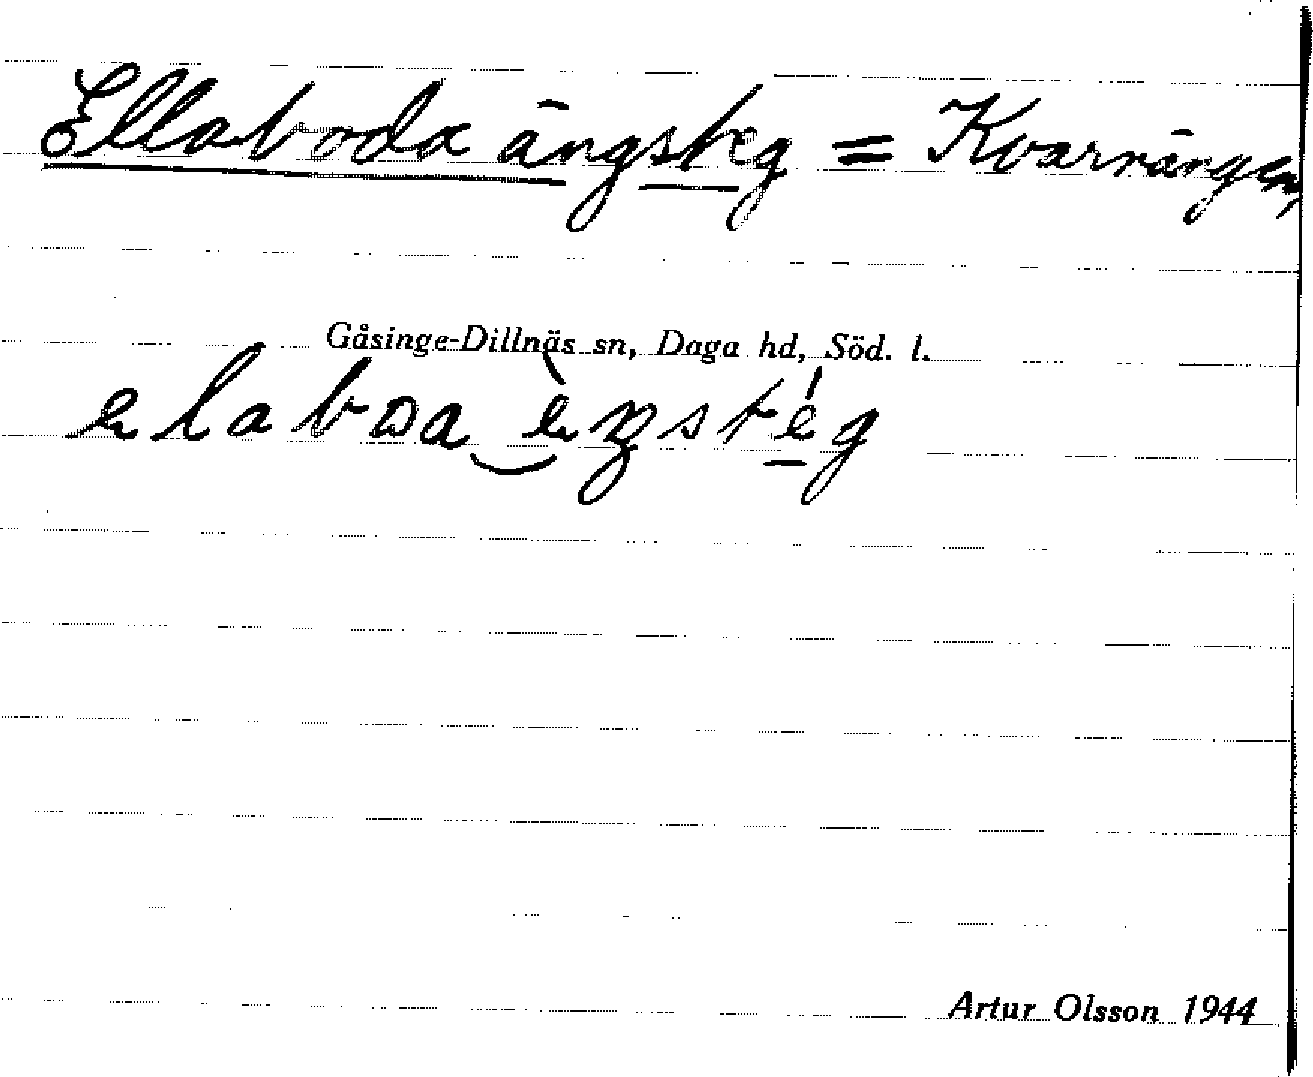 Ellaboda ängsteg = Kvarnängen,
Gåsinge-Dillnäs sn, Daga hd, Söd. l.
Artur Olsson 1944